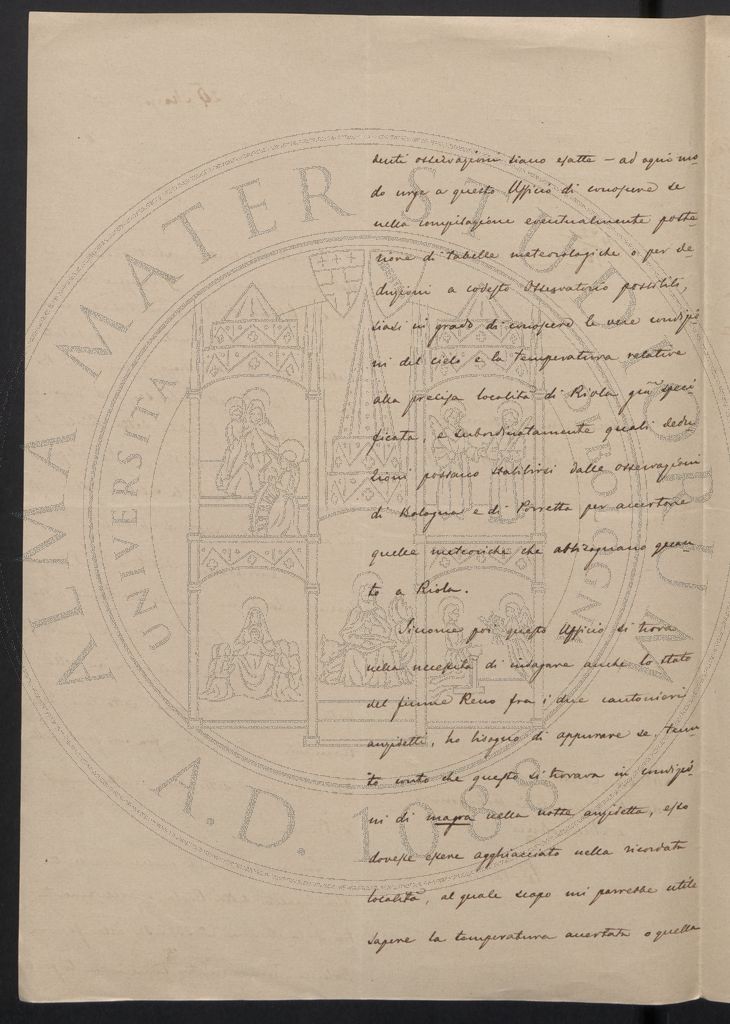 denti osservazioni siano esatte – ad ogni mo-
do urge a questo Ufficio di conoscere se
nella compilazione eventualmente poste-
riore di tabelle meteorologiche o per de-
duzioni a codesto Osservatorio possibili,
siasi in grado di conoscere le vere condizio-
ni del cielo e la temperatura relative
alla precisa località di Riola già speci-
ficata, e subordinatamente quali dedu-
zioni possano stabilirsi dalle osservazioni
di Bologna e di Porretta per accertare
quelle meteoriche che abbisognano quan-
to a Riola.
Siccome poi questo Ufficio si trova
nella necessità di indagare anche lo stato
del fiume Reno fra i due cantonieri
anzidetti, ho bisogno di appurare se, tenu-
to conto che questo si trovava in condizio-
ni di magra nella notte anzidetta, esso
dovesse essere agghiacciato nella ricordata
località, al quale scopo mi parrebbe utile
sapere la temperatura accertata o quella
ALMA MATER STUDIORUM
UNIVERSITÀ DI BOLOGNA
A.D. 1088